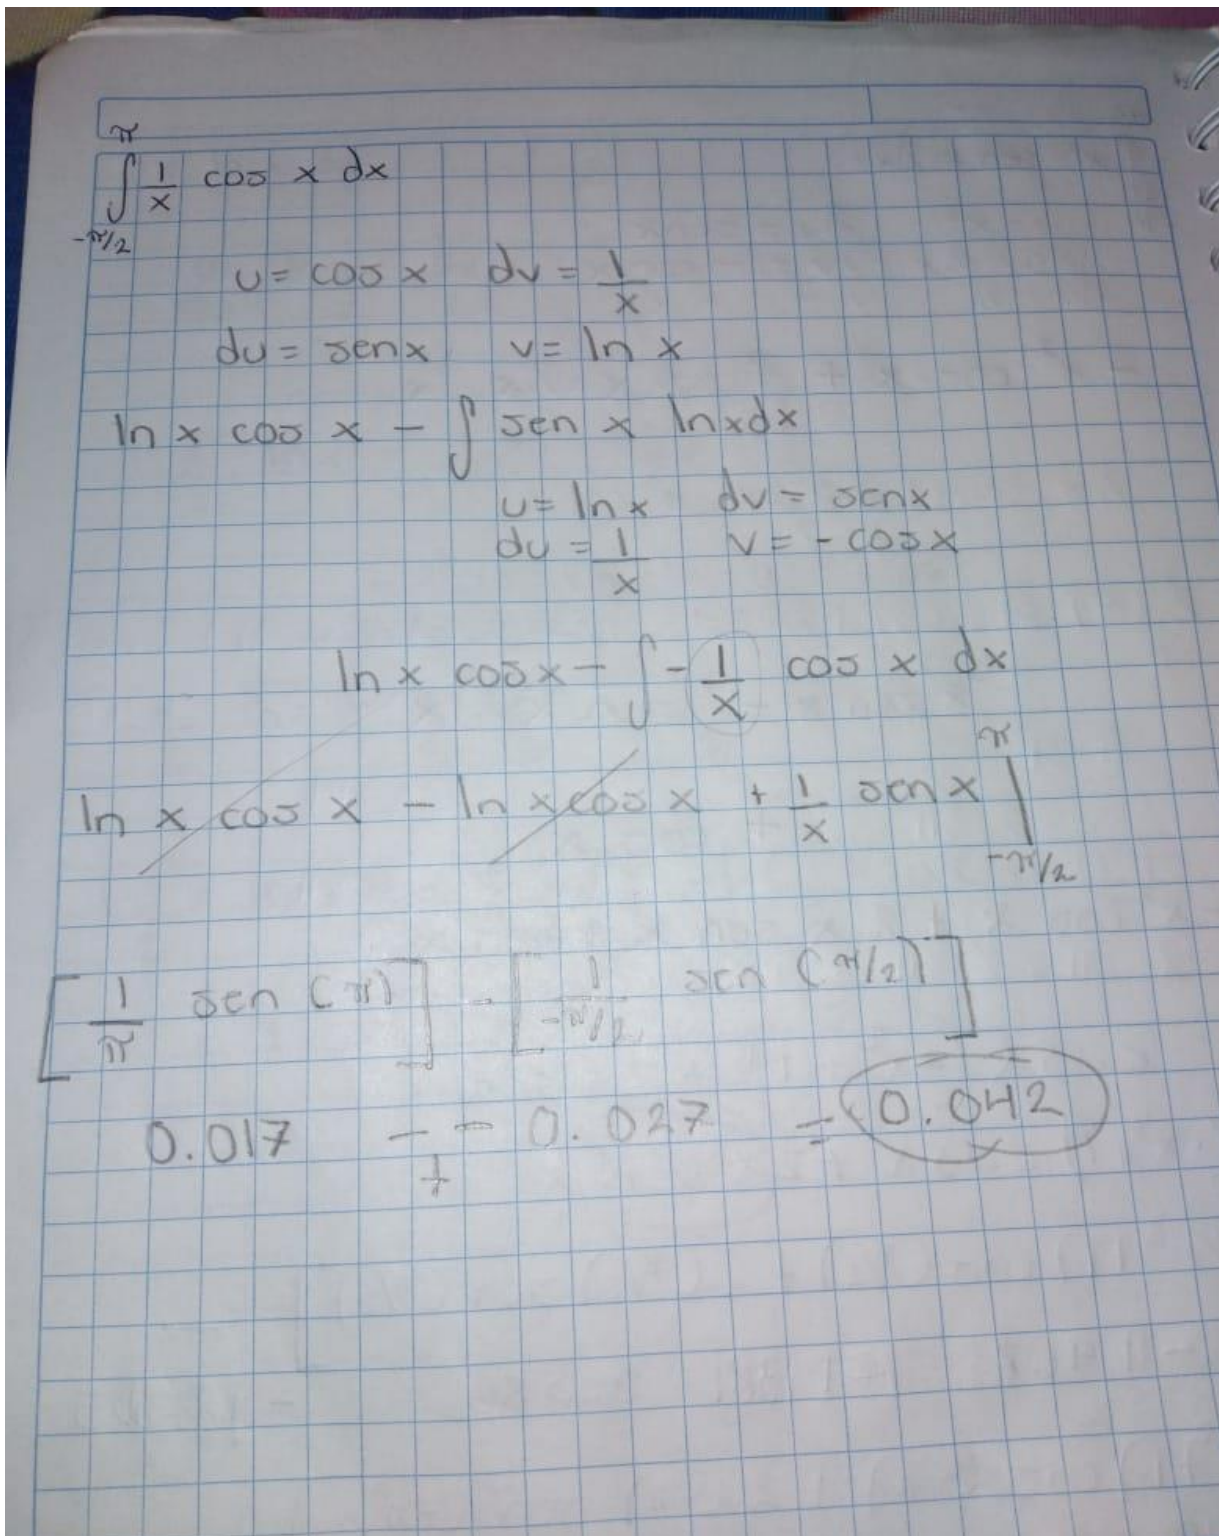 π
∫ 1/x cos x dx
-π/2
u = cos x dv = 1/x
du = sen x v = ln x
ln x cos x - ∫ sen x ln x dx
u = ln x dv = sen x
du = 1/x v = - cos x
ln x cos x - ∫ - 1/x cos x dx
ln x cos x - ln x cos x + 1/x sen x | π
-π/2
[ 1/π sen (π) ] - [ 1/-π/2 sen (π/2) ]
0.017 - - 0.027 = 0.042
+